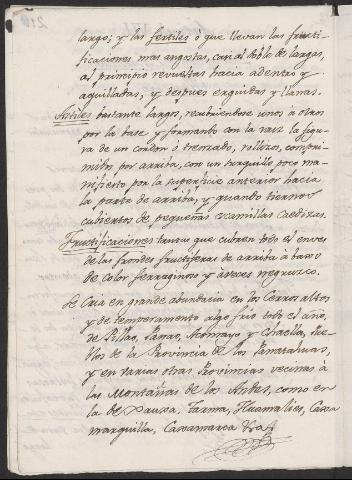 largo; y las fertiles ó que llevan las fructi-
ficaciones mas angostas, casi al doble de largas,
al principio revueltas hacia adentro y
aquilladas, y despues erguidas y llanas.
Astiles bastante largos, recubriendose unos à otros
por la base y formando con la raiz la figu-
ra de un cordon ó trenzado, rollizos, compri-
midos por arriba, con un surquillo poco ma-
nifiesto por la superficie anterior hacia
la parte de arriba, y quando tiernos
cubiertos de pequeñas escamillas caedizas.
Fructificaciones tantas que cubren todo el enves
de las frondes fructiferas de arriba à baxo
de color ferruginoso y à veces negruzco.
Se Cria en grande abundancia en los Cerros altos
y de temperamento algo frio todo el año,
de Pillao, Panao, Acomayo y Chaclla, Pue-
blos de la Provincia de los Panatahuas,
y en varias otras Provincias vecinas à
las Montañas de los Andes, como en
la de Xauxa, Tarma, Huamalies, Caxa
marquilla, Caxamarca